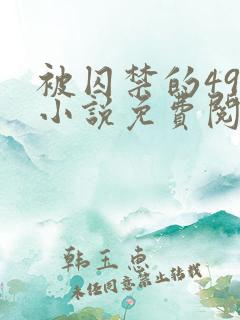 被囚禁的49
小说免费阅
韩玉恵
未经同意禁止转载